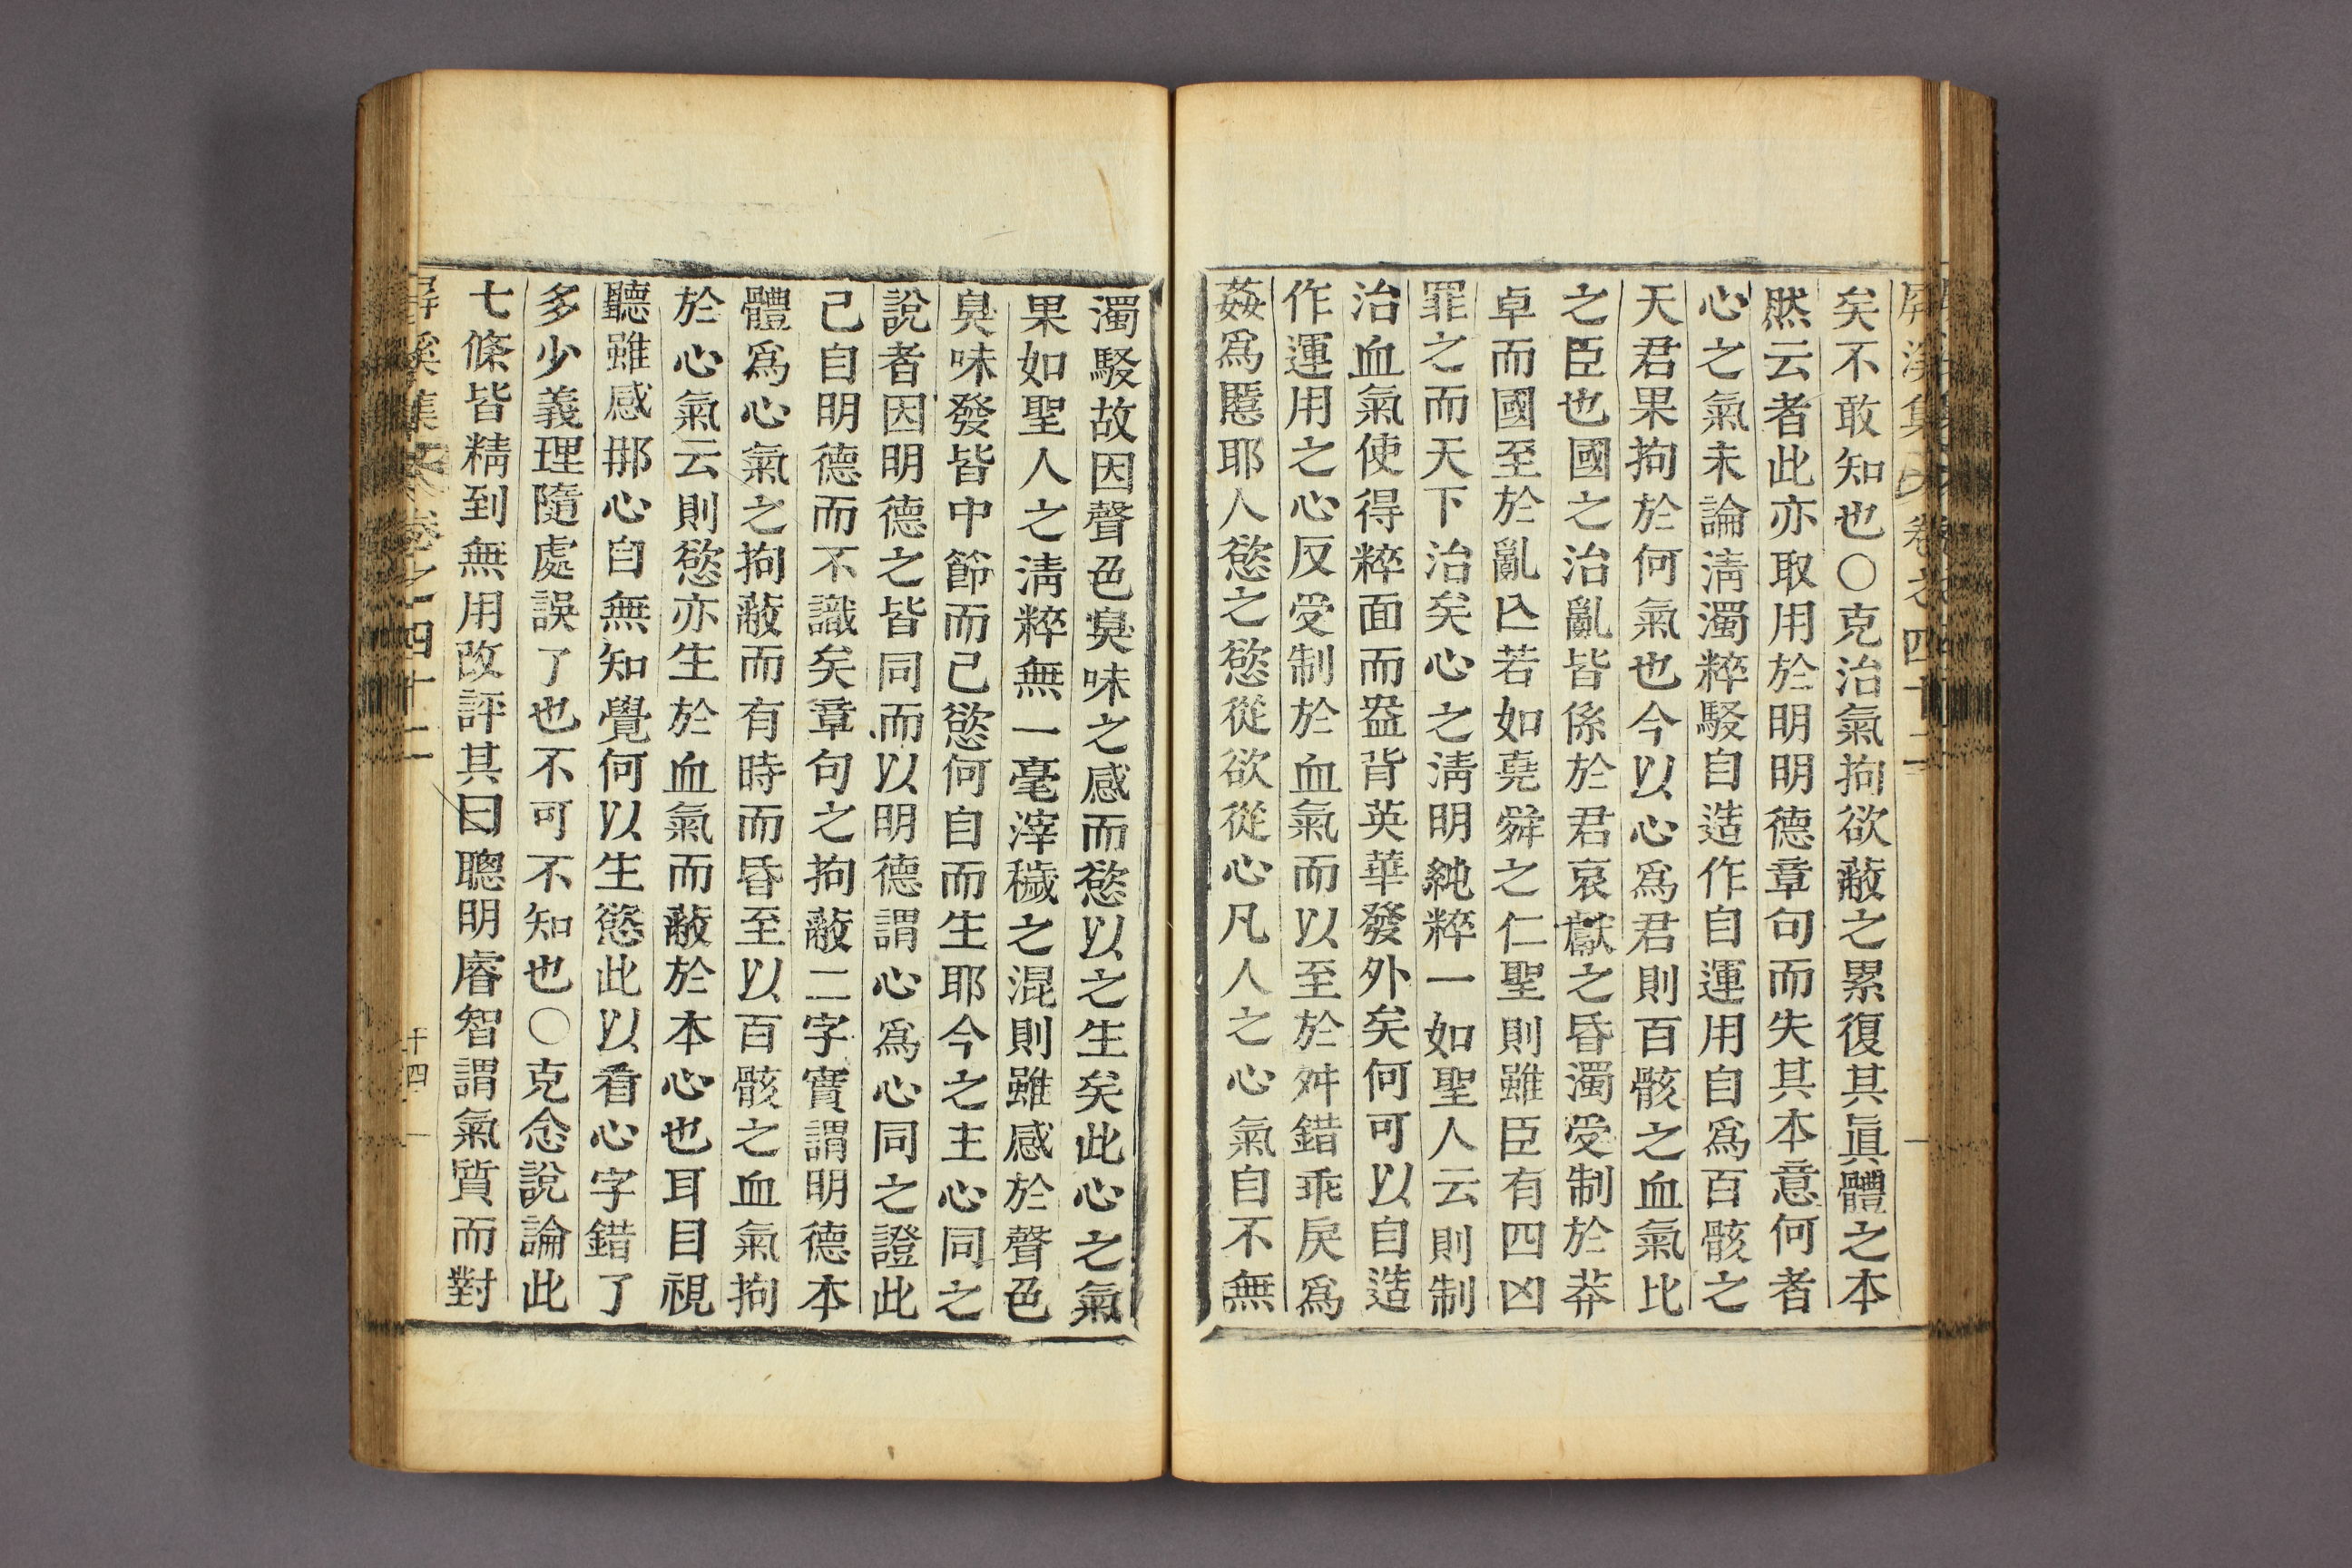 屏溪集 卷之四十二
矣不敢知也○克治氣拘欲蔽之累復其眞體之本
然云者此亦取用於明明德章句而失其本意何者
心之氣未論淸濁粹駁自造作自運用自爲百骸之
天君果拘於何氣也今以心爲君則百骸之血氣比
之臣也國之治亂皆係於君哀獻之昏濁受制於莽
卓而國至於亂亾若如堯舜之仁聖則雖臣有四凶
罪之而天下治矣心之淸明純粹一如聖人云則制
治血氣使得粹面而盎背英華發外矣何可以自造
作運用之心反受制於血氣而以至於舛錯乖戾爲
姦爲慝耶人慾之慾從欲從心凡人之心氣自不無
濁駁故因聲色臭味之感而慾以之生矣此心之氣
果如聖人之淸粹無一毫滓穢之混則雖感於聲色
臭味發皆中節而己慾何自而生耶今之主心同之
說者因明德之皆同而以明德謂心爲心同之證此
己自明德而不識矣章句之拘蔽二字實謂明德本
體爲心氣之拘蔽而有時而昏至以百骸之血氣拘
於心氣云則慾亦生於血氣而蔽於本心也耳目視
聽雖感那心自無知覺何以生慾此以看心字錯了
多少義理隨處誤了也不可不知也○克念說論此
七條皆精到無用改評其曰聰明睿智謂氣質而對
屏溪集 卷之四十二 十四